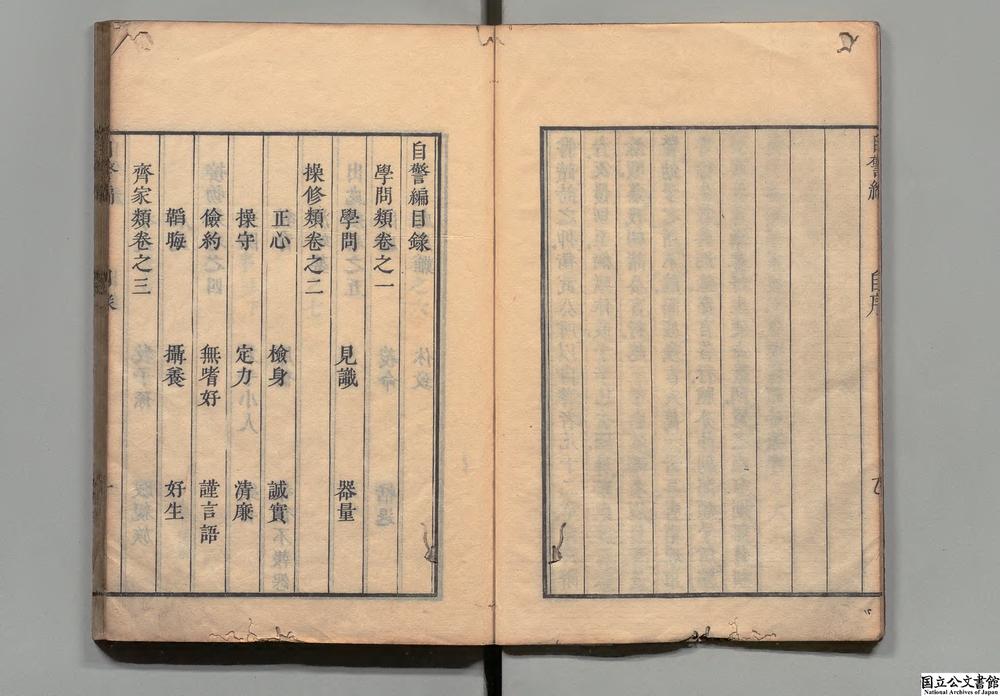 自警編 自序
自警編目錄
學問類卷之一
學問 見識 器量
操修類卷之二
正心 檢身 誠實
操守 定力 清廉
儉約 無嗜好 謹言語
韜晦 攝養 好生
齊家類卷之三
国立公文書館
National Archives of Japan